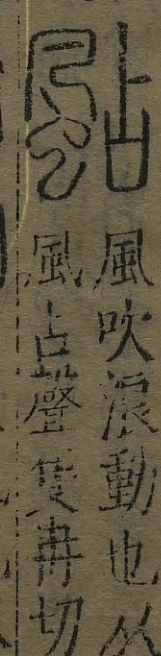 颭
風吹浪動也从
風占聲隻冉切